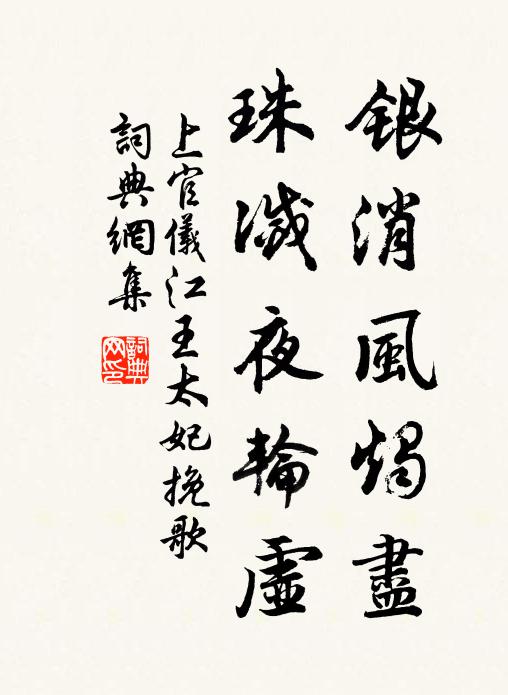 銀消風燭盡
珠滅夜輪虛
上官儀江王太妃挽歌
詞典網集
詞典网印